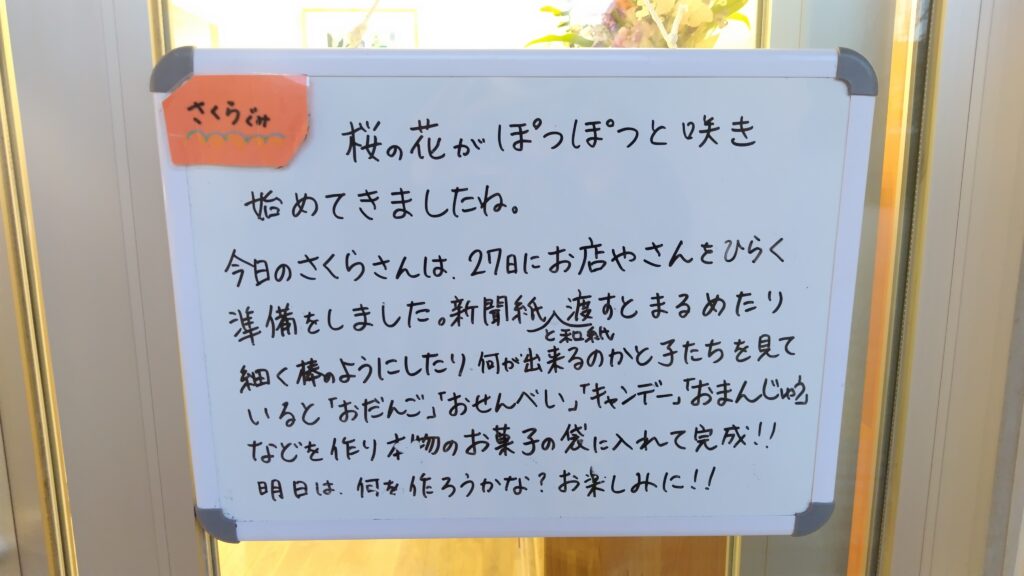 さくらぐみ
桜の花がぽつぽつと咲き
始めてきましたね。
今日のさくらさんは、27日にお店やさんをひらく
準備をしました。新聞紙と和紙渡すとまるめたり
細く棒のようにしたり何が出来るのかと子たちを見て
いると「おだんご」「おせんべい」「キャンデー」「おまんじゅう」
などを作り本物のお菓子の袋に入れて完成!!
明日は、何を作ろうかな?お楽しみに!!